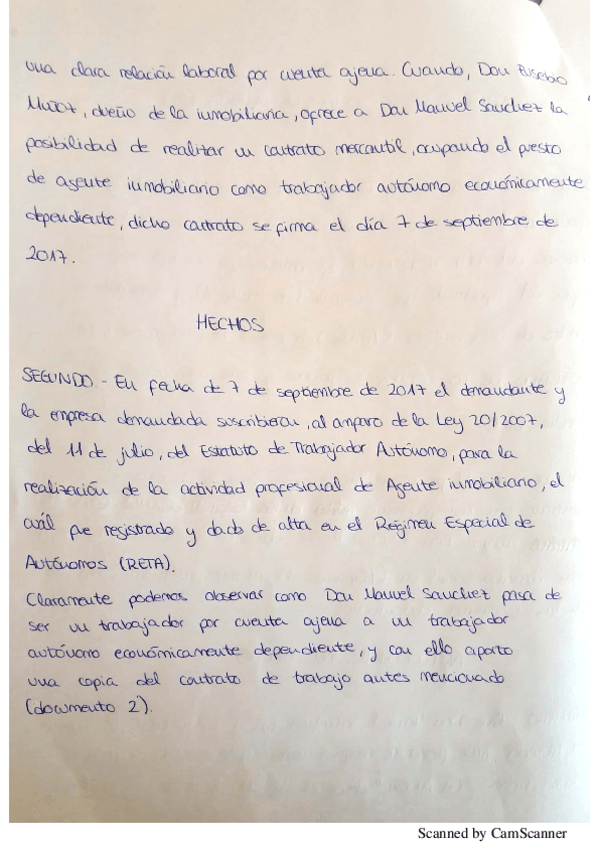 una clara relación laboral por cuenta ajena. Cuando, Don Eusebio
Muñoz, dueño de la inmobiliaria, ofrece a Don Manuel Sanchez la
posibilidad de realizar un contrato mercantil, ocupando el puesto
de agente inmobiliario como trabajador autónomo económicamente
dependiente, dicho contrato se firma el día 7 de septiembre de
2017.
HECHOS
SEGUNDO.- En fecha de 7 de septiembre de 2017 el demandante y
la empresa demandada suscribieron, al amparo de la Ley 20/2007,
del 11 de julio, del Estatuto de Trabajador Autónomo, para la
realización de la actividad profesional de Agente inmobiliario, el
cuál fue registrado y dado de alta en el Régimen Especial de
Autónomos (RETA).
Claramente podemos observar como Don Manuel Sanchez pasa de
ser un trabajador por cuenta ajena a un trabajador
autónomo económicamente dependiente, y con ello aporto
una copia del contrato de trabajo antes mencionado
(documento 2).
Scanned by CamScanner